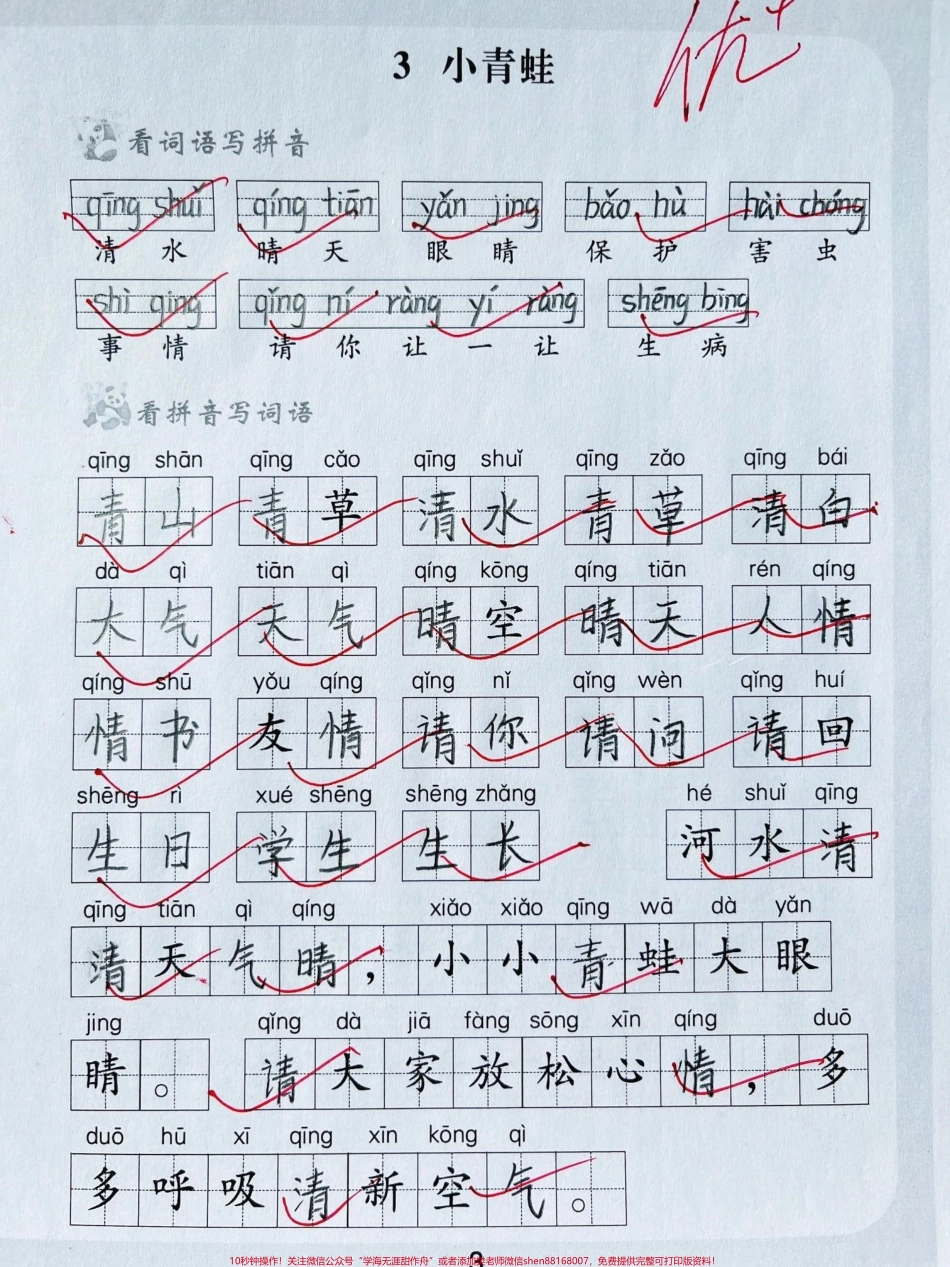 优+
3 小青蛙
看词语写拼音
qīng shuǐ qíng tiān yǎn jing bǎo hù hài chóng
清水 晴天 眼睛 保护 害虫
shì qing qǐng ní ràng yí ràng shēng bìng
事情 请你让一让 生病
看拼音写词语
qīng shān qīng cǎo qīng shuǐ qīng zǎo qīng bái
青山 青草 清水 青草 清白
dà qì tiān qì qíng kōng qíng tiān rén qíng
大气 天气 晴空 晴天 人情
qíng shū yǒu qíng qǐng nǐ qǐng wèn qǐng huí
情书 友情 请你 请问 请回
shēng rì xué shēng shēng zhǎng hé shuǐ qīng
生日 学生 生长 河水清
qīng tiān qì qíng xiǎo xiǎo qīng wā dà yǎn
清天气晴，小小青蛙大眼
jing qǐng dà jiā fàng sōng xīn qíng duō
睛。 请大家放松心情，多
duō hū xī qīng xīn kōng qì
多呼吸清新空气。
10秒钟操作！关注微信公众号“学海无涯甜作舟”或者添加 老师微信shen88168007，免费提供完整可打印版资料！